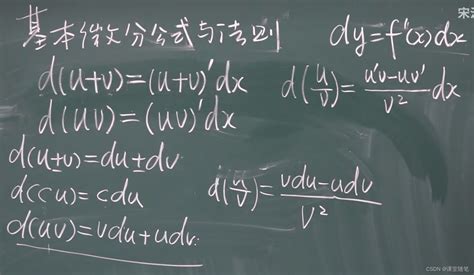 基本微分公式与法则
dy=f'(x)dx
d(u+v)=(u+v)'dx
d(u/v)=(u'v-uv')/v² dx
d(uv)=(uv)'dx
d(u±v)=du±dv
d(cu)=cdu
d(u/v)=(vdu-udv)/v²
d(uv)=vdu+udv
CSDN @课堂随笔